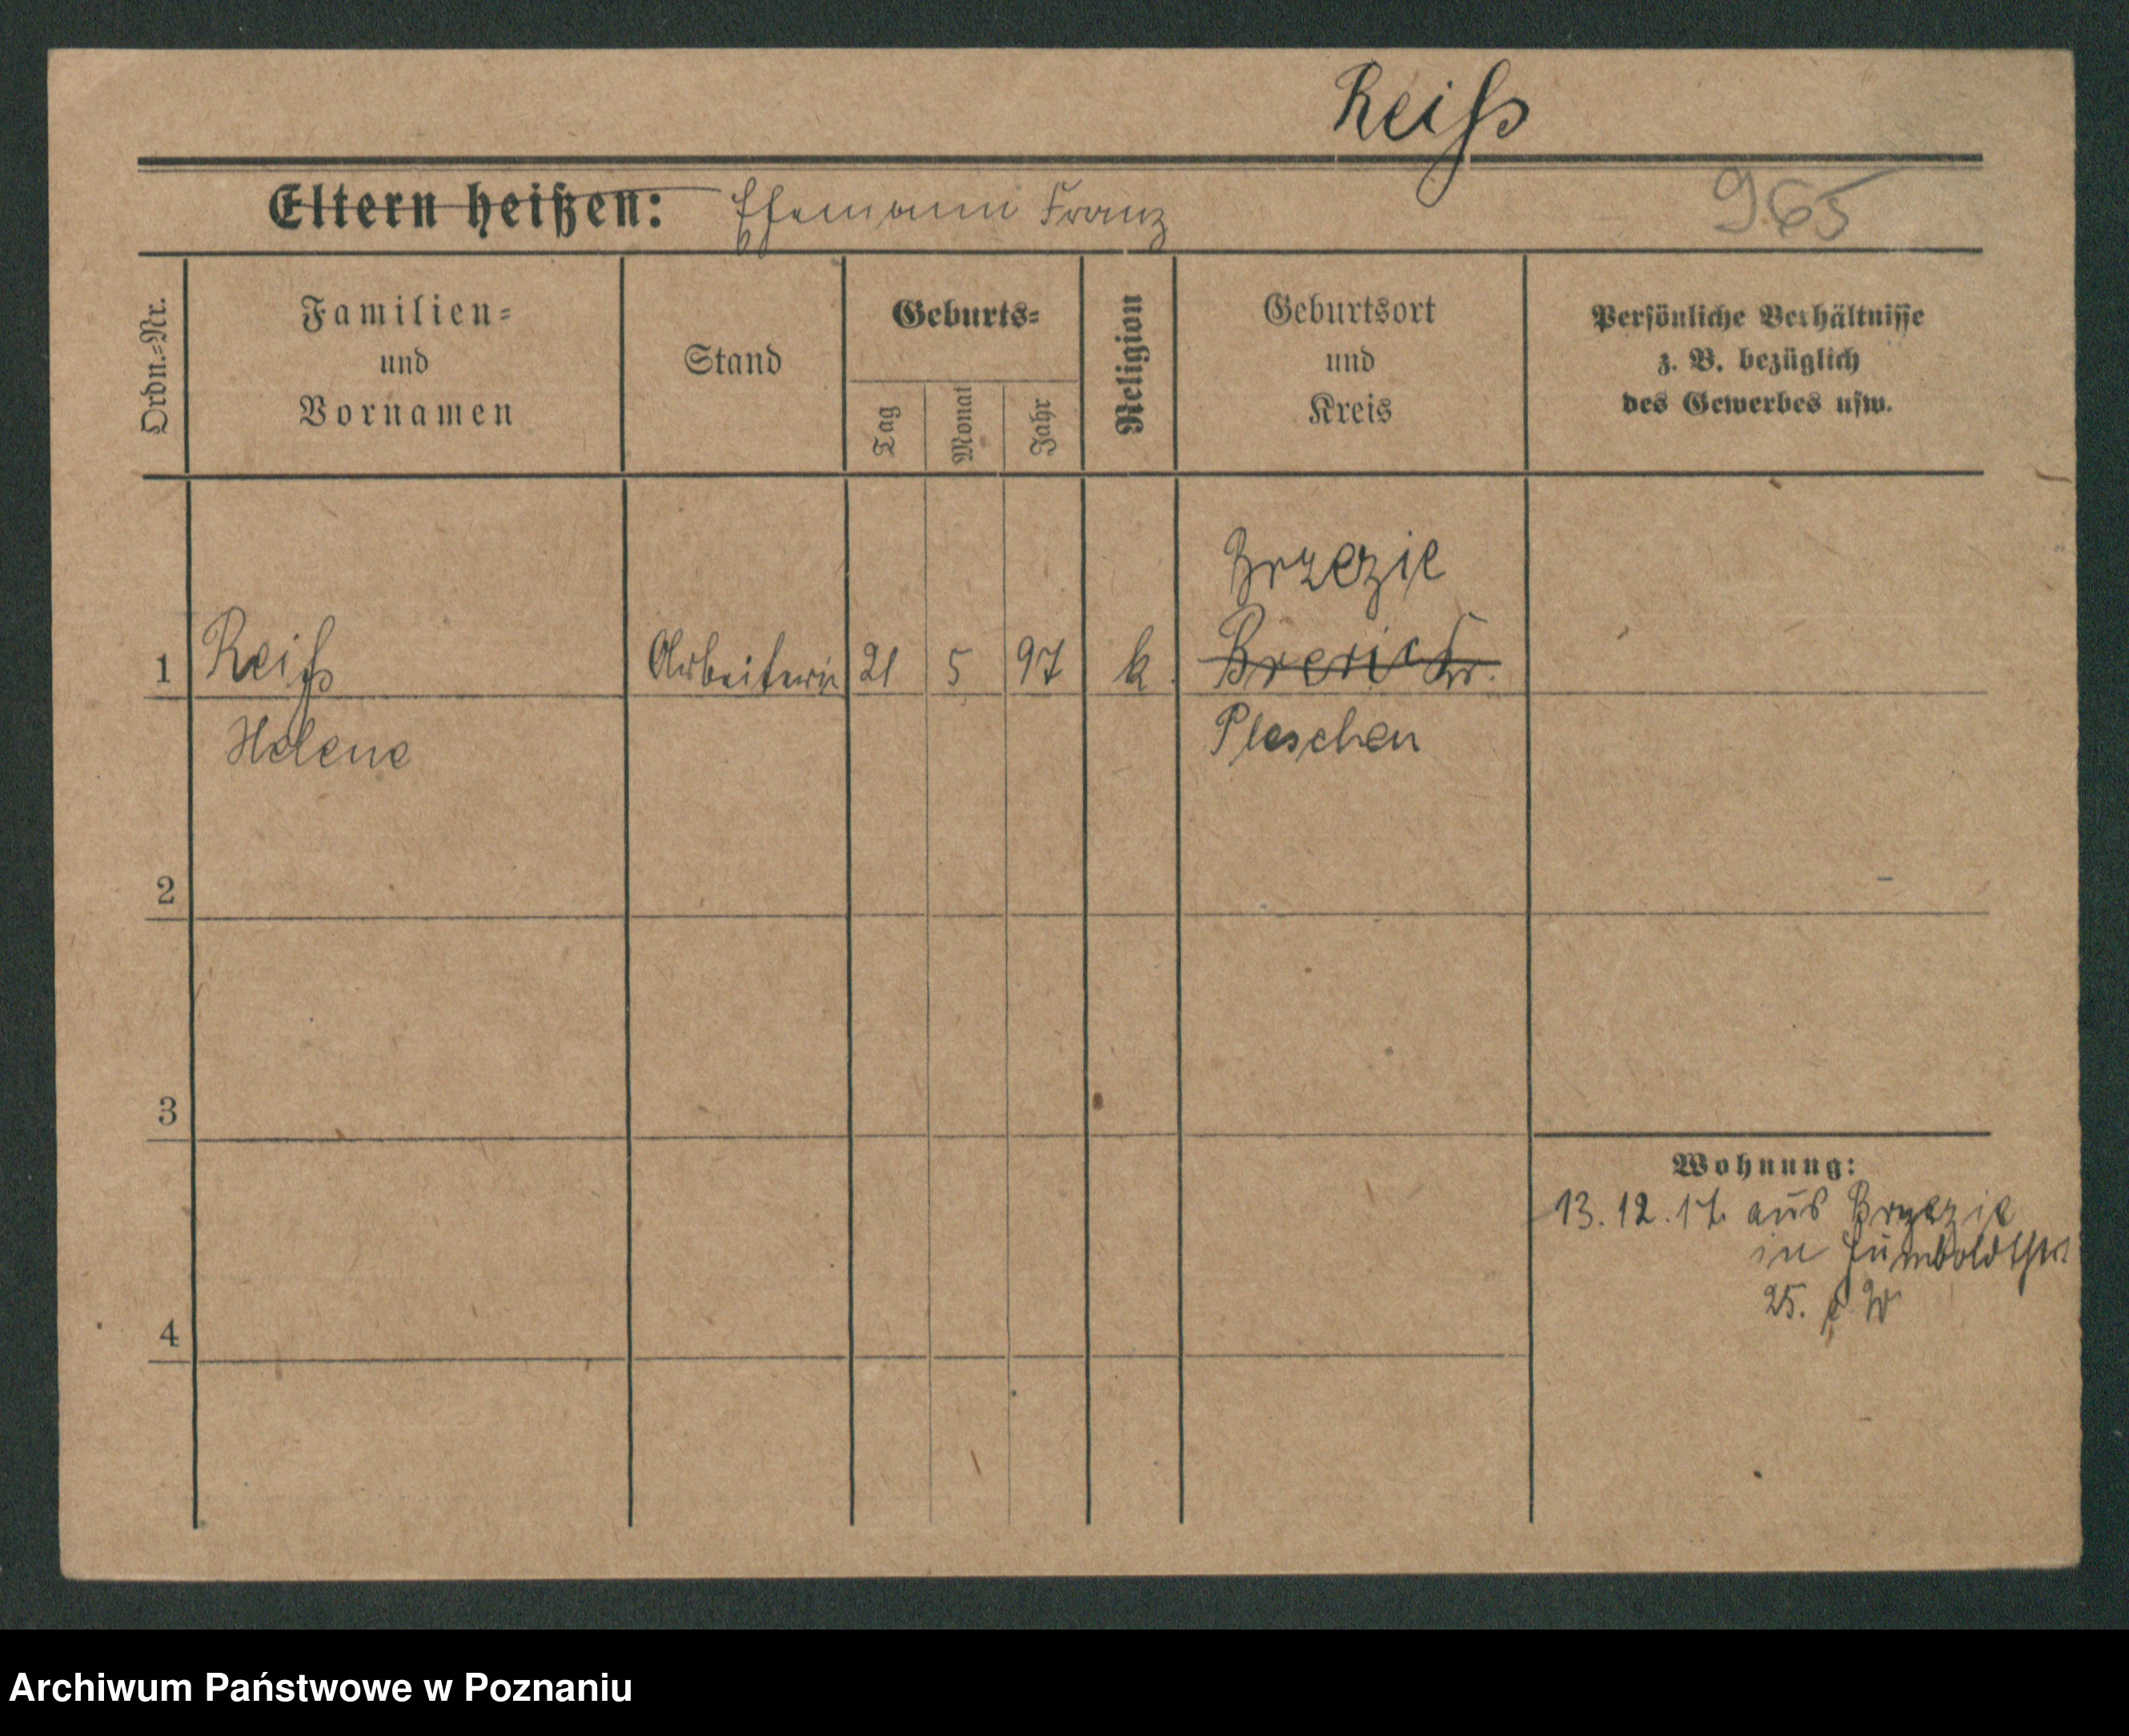 Reiß
Eltern heißen: Ehemann Franz
965
Ordn.=Nr.
Familien=
und
Vornamen
Stand
Geburts=
Tag
Monat
Jahr
Religion
Geburtsort
und
Kreis
Persönliche Verhältnisse
z. B. bezüglich
des Gewerbes usw.
Brzezie
1 Reiß Arbeiterin 21 5 97 k. Kr.
Helene Pleschen
2
3
4
Wohnung:
13.12.17. aus Brzezie
in Humboldtstr.
25.
Archiwum Państwowe w Poznaniu